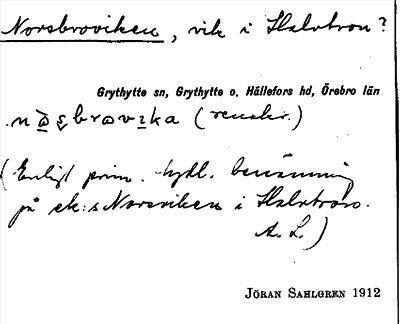 Norsbroviken, vik i Halvtron?
Grythytte sn, Grythytte o. Hällefors hd, Örebro län
(Enligt prim. tydl. benämning
på ek:s Norsviken i Halvtron.
A. L.)
JÖRAN SAHLGREN 1912